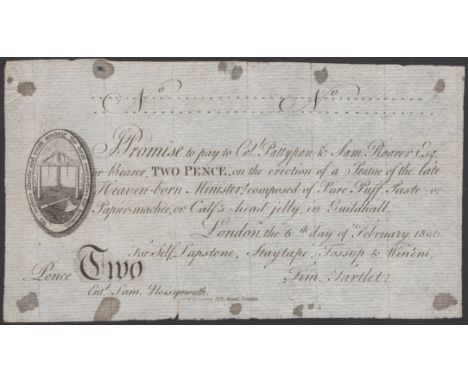 No No
I Promise to pay to Col. Pattypan & Sam. Roarer Esq.
or Bearer, TWO PENCE, on the erection of a Statue of the late
Heaven-born Minister, composed of Pure Puff Paste or
Papier-macher, or Calf's-head jelly, in Guildhall.
London, the 6th day of February 1806
For Self, Lapstone, Staytape, Tossup & Win'em,
Pence Two
Tim. Tartlet
Entd. Sam. Noisymouth.
London